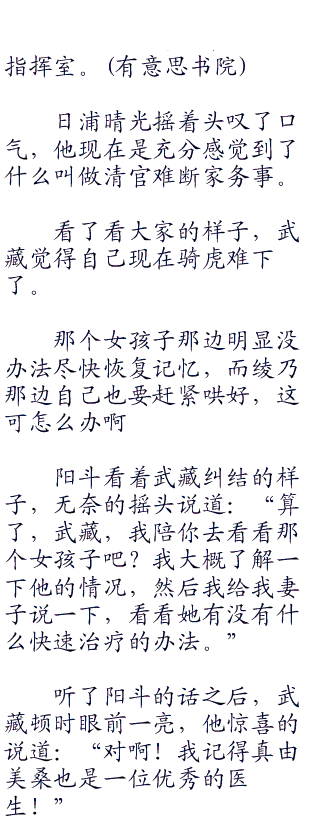 指挥室。(有意思书院)
日浦晴光摇着头叹了口
气，他现在是充分感觉到了
什么叫做清官难断家务事。
看了看大家的样子，武
藏觉得自己现在骑虎难下
了。
那个女孩子那边明显没
办法尽快恢复记忆，而绫乃
那边自己也要赶紧哄好，这
可怎么办啊
阳斗看着武藏纠结的样
子，无奈的摇头说道：“算
了，武藏，我陪你去看看那
个女孩子吧？我大概了解一
下他的情况，然后我给我妻
子说一下，看看她有没有什
么快速治疗的办法。”
听了阳斗的话之后，武
藏顿时眼前一亮，他惊喜的
说道：“对啊！我记得真由
美桑也是一位优秀的医
生！”